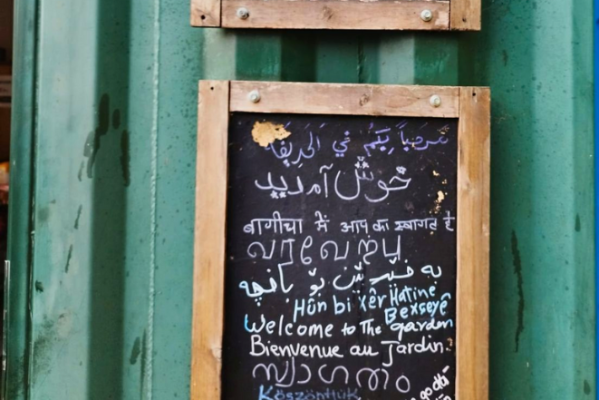 مرحباً بِكُم في الحَدِيقَة
خوش آمدید
बागीचा में आप का स्वागत है
வரவேற்பு
بۆ
Hûn bi xêr Hatine
Bexseyê
Welcome to The garden
Bienvenue au Jardin.
സ്വാഗതം
Köszöntük